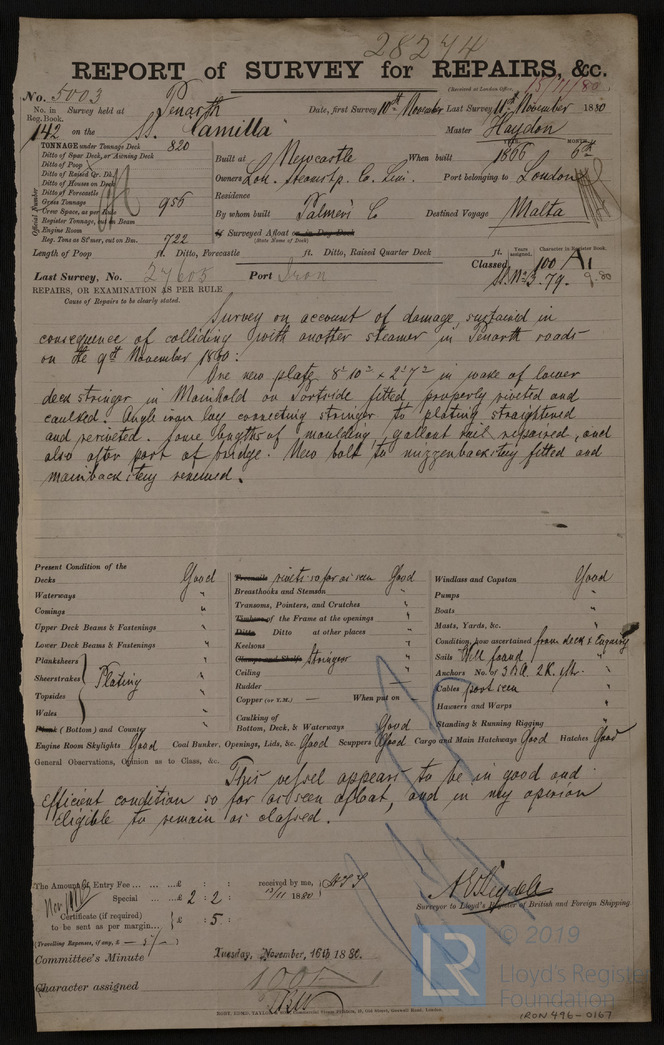 28274
REPORT of SURVEY for REPAIRS, &c.
Received at London Office, 15/11/80
No. 5003
No. in Reg. Book. Survey held at Penarth Date, first Survey 10th November Last Survey 11th November 1880
142 on the SS. "Camilla" Master Haydon
TONNAGE under Tonnage Deck 820
Ditto of Spar Deck, or Awning Deck
Ditto of Poop
Ditto of Raised Qr. Dk.
Ditto of Houses on Deck
Ditto of Forecastle
Gross Tonnage 956
Crew Space, as per Rule
Register Tonnage, cut on Beam
Engine Room
Reg. Tons as St'mer, cut on Bm. 722
Official Number
Built at Newcastle When built YEAR. 1866 MONTH. 6th
Owners Lon. Steamsp. C. Lim. Port belonging to London
Residence
By whom built Palmers C Destined Voyage Malta
If Surveyed Afloat or in Dry Dock
(State Name of Dock)
Length of Poop ft. Ditto, Forecastle ft. Ditto, Raised Quarter Deck ft.
Years assigned. Character in Register Book.
Classed, 100 A1
SS. No 3. 79. 9.80
Last Survey, No. 27605 Port Iron
REPAIRS, OR EXAMINATION AS PER RULE
Cause of Repairs to be clearly stated.
Survey on account of damage, sustained in
consequence of colliding with another steamer in Penarth roads
on the 9th November 1880.
One new plate 8'10" x 2'7" in wake of lower
deck stringer in Mainhold on Portside fitted properly riveted and
caulked. Angle iron lug connecting stringer to plating straightened
and reriveted. Some lengths of moulding, gallant rail repaired, and
also after part of bridge. New bolt to mizzenbackstay fitted and
mainbackstay renewed.
Present Condition of the
Decks Good
Waterways "
Comings "
Upper Deck Beams & Fastenings "
Lower Deck Beams & Fastenings "
Planksheers
Sheerstrakes
Topsides
Wales
Plating "
Plank (Bottom) and Counter "
Treenails rivets so far as seen Good
Breasthooks and Stemson "
Transoms, Pointers, and Crutches "
Timbers of the Frame at the openings "
Ditto Ditto at other places "
Keelsons "
Clamps and Shelfs Stringers "
Ceiling "
Rudder "
Copper (or Y.M.) — When put on —
Caulking of
Bottom, Deck, & Waterways Good
Windlass and Capstan Good
Pumps "
Boats "
Masts, Yards, &c. "
Condition, how ascertained from deck & enquiry
Sails Well found "
Anchors No. of 3 B.A. 2 K. 1 St. "
Cables part seen "
Hawsers and Warps "
Standing & Running Rigging "
Engine Room Skylights Good Coal Bunker, Openings, Lids, &c. Good Scuppers Good Cargo and Main Hatchways Good Hatches Good
General Observations, Opinion as to Class, &c.
This vessel appears to be in good and
efficient condition so far as seen afloat, and in my opinion
eligible to remain as classed.
The Amount of Entry Fee ... ... £ : : received by me,
Special ... £ 2 : 2 : 13/11 1880
Certificate (if required) to be sent as per margin... £ : 5 :
(Travelling Expenses, if any, £ — 5/-)
Surveyor to Lloyd's Register of British and Foreign Shipping
Committee's Minute Tuesday, November, 16th 1880.
Character assigned 100A1
© 2019
LR
Lloyd's Register
Foundation
IRON 496-0167